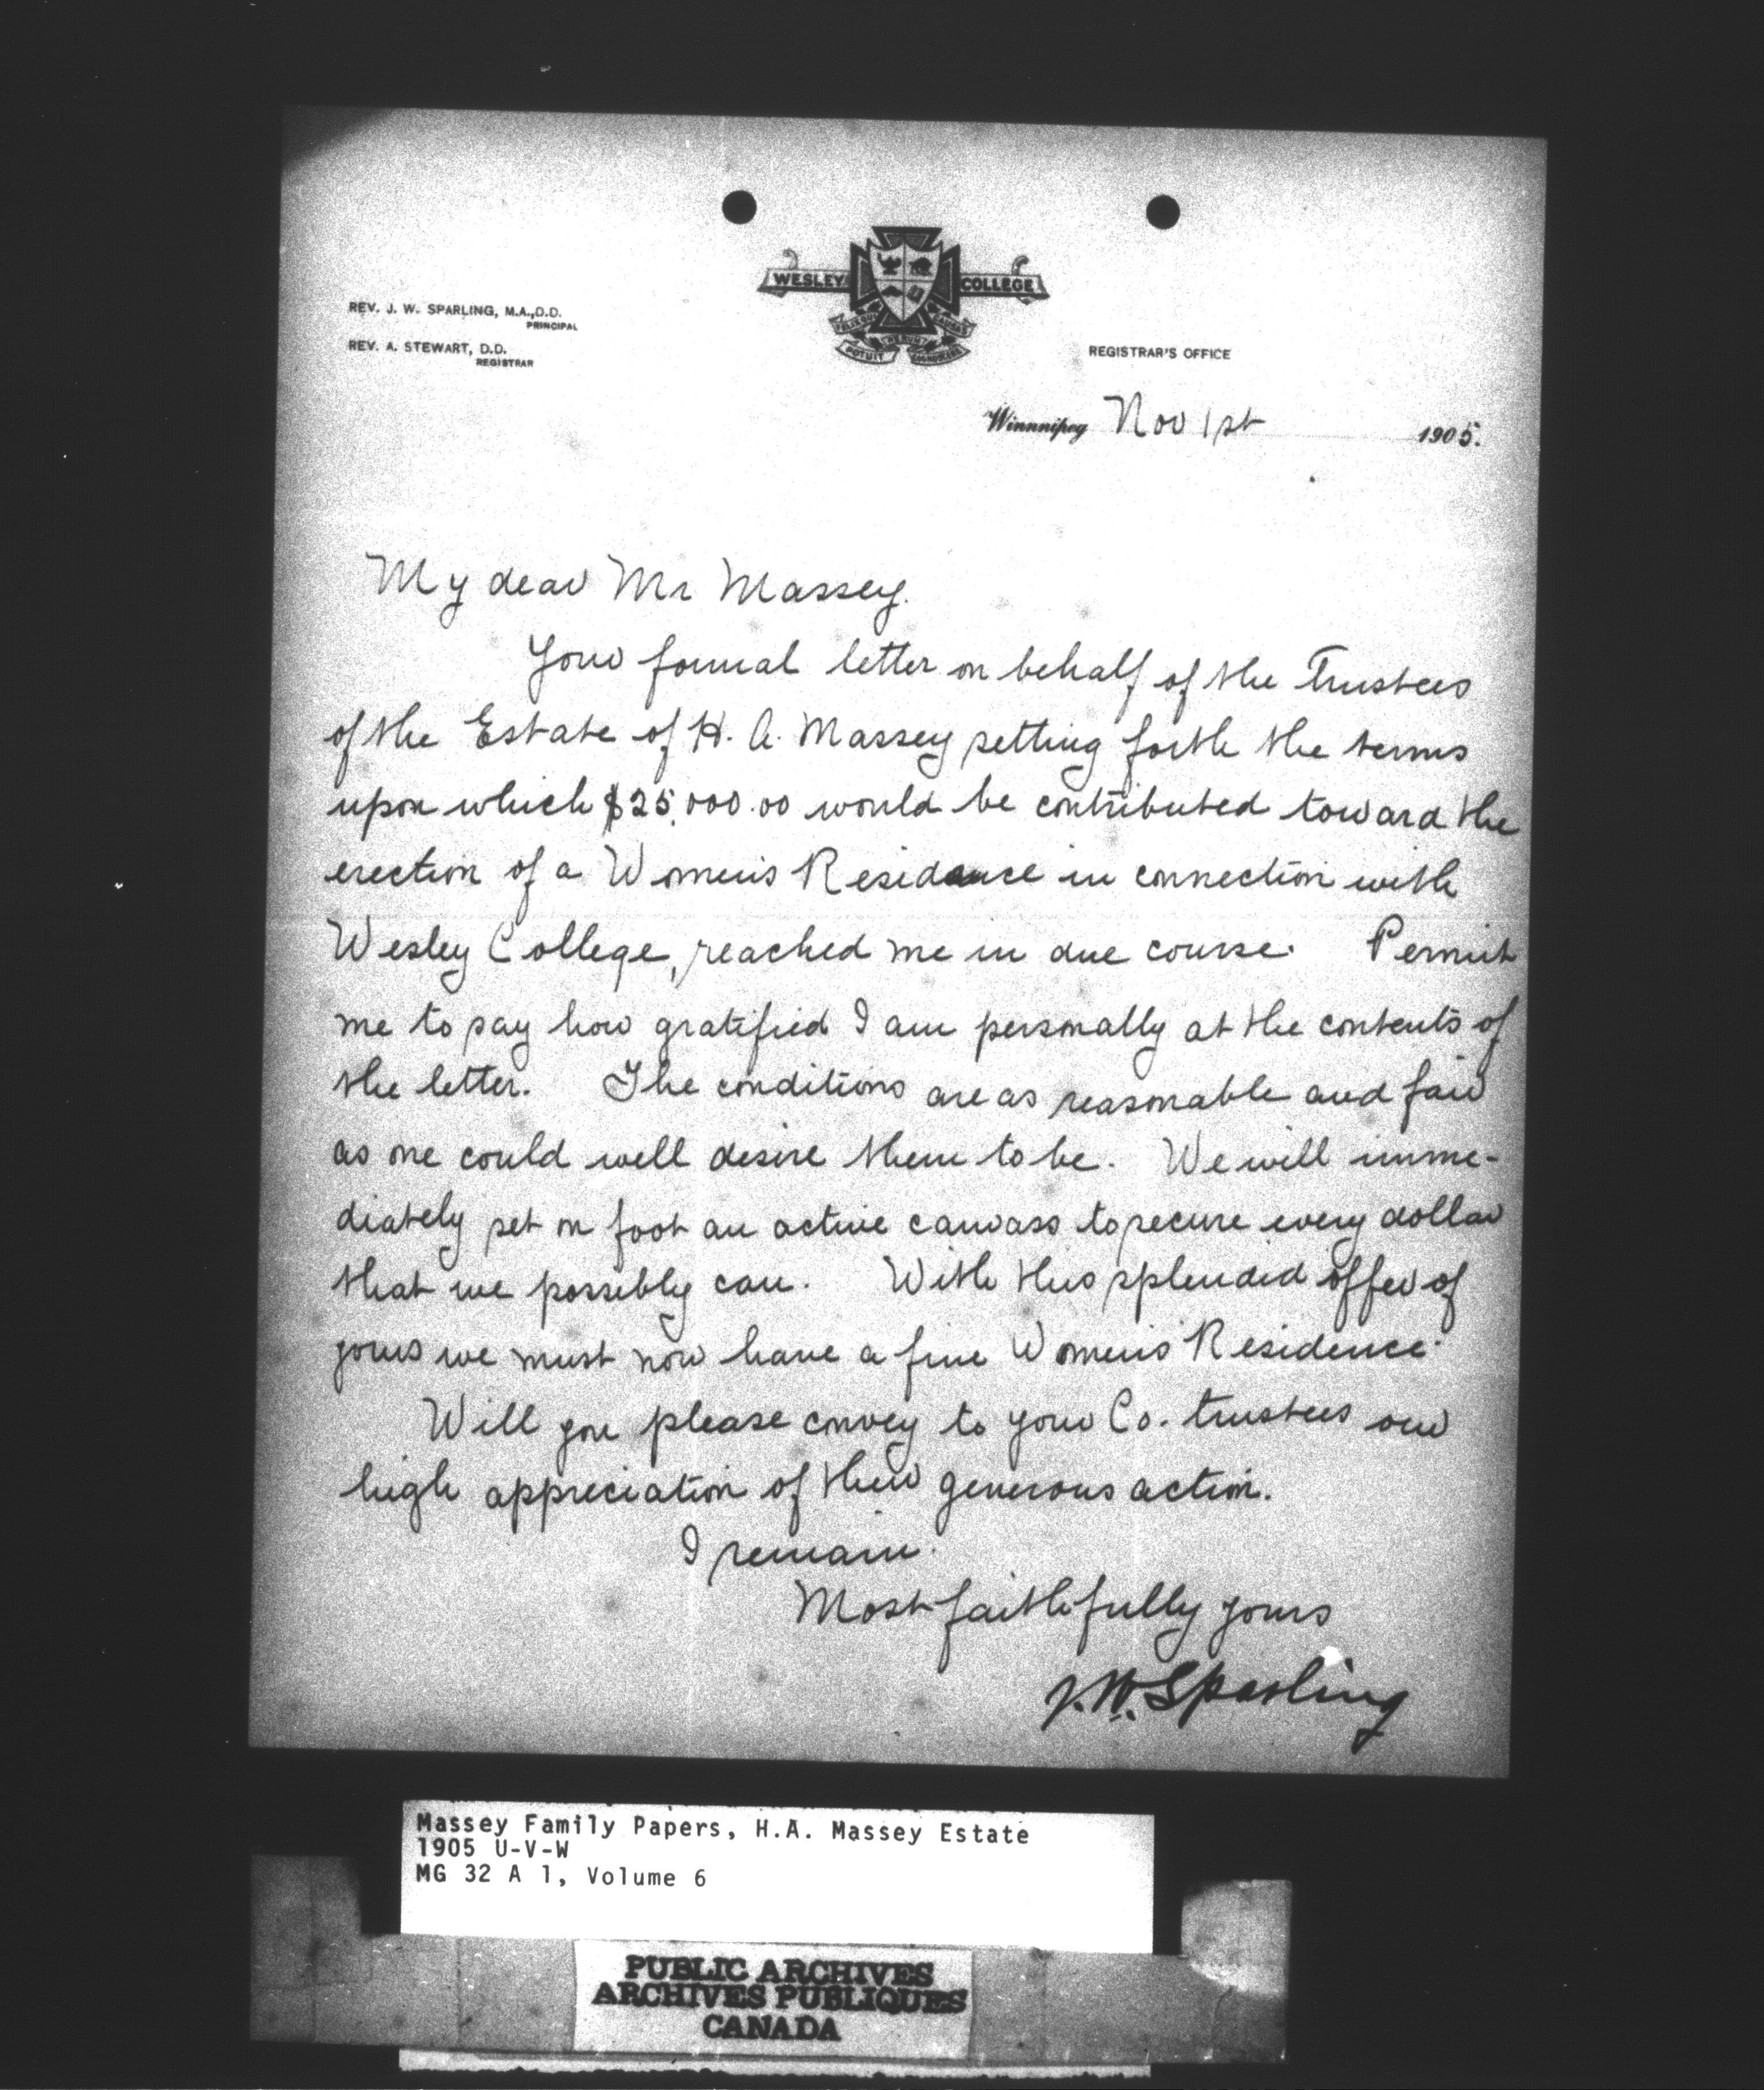 WESLEY COLLEGE
REV. J. W. SPARLING, M.A., D.D.
PRINCIPAL
REV. A. STEWART, D.D.
REGISTRAR
POTUIT
REGISTRAR'S OFFICE
Winnnipeg Nov 1st 1905.
My dear Mr Massey.
Your formal letter on behalf of the Trustees
of the Estate of H. A. Massey setting forth the terms
upon which $25,000.00 would be contributed toward the
erection of a Women's Residence in connection with
Wesley College, reached me in due course. Permit
me to say how gratified I am personally at the contents of
the letter. The conditions are as reasonable and fair
as one could well desire them to be. We will imme-
diately set on foot an active canvass to secure every dollar
that we possibly can. With this splendid offer of
yours we must now have a fine Women's Residence.
Will you please convey to your Co. trustees our
high appreciation of their generous action.
I remain.
Most faithfully yours
J. W. Sparling
Massey Family Papers, H.A. Massey Estate
1905 U-V-W
MG 32 A 1, Volume 6
PUBLIC ARCHIVES
ARCHIVES PUBLIQUES
CANADA